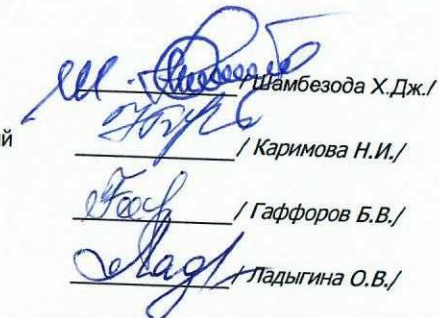 / Шамбезода Х.Дж./
ий
/ Каримова Н.И./
/ Гаффоров Б.В./
/ Ладыгина О.В./